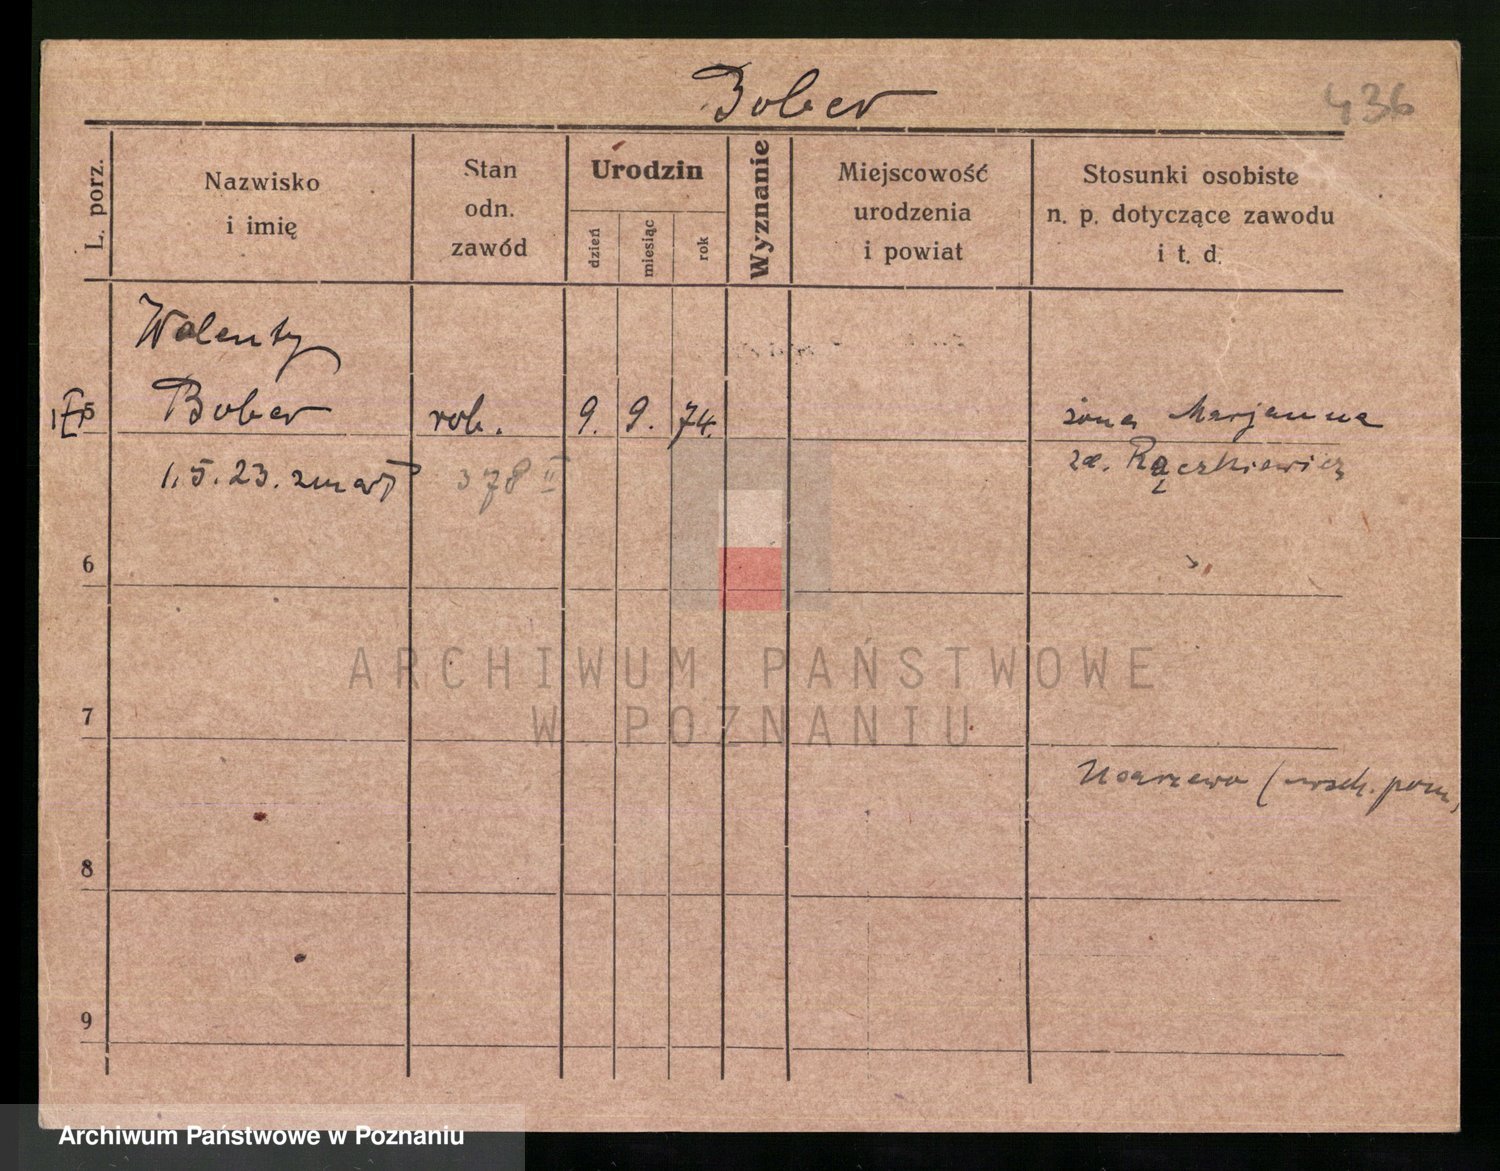 Bober
436
L. porz.
Nazwisko
i imię
Stan
odn.
zawód
Urodzin
dzień
miesiąc
rok
Wyznanie
Miejscowość
urodzenia
i powiat
Stosunki osobiste
n. p. dotyczące zawodu
i t. d.
Walenty
5 Bober rob. 9. 9. 74. żona Marjanna
1.5.23. zmarł 378 II zd. Rączkiewicz
6
7
8
9
ARCHIWUM PAŃSTWOWE
W POZNANIU
Archiwum Państwowe w Poznaniu